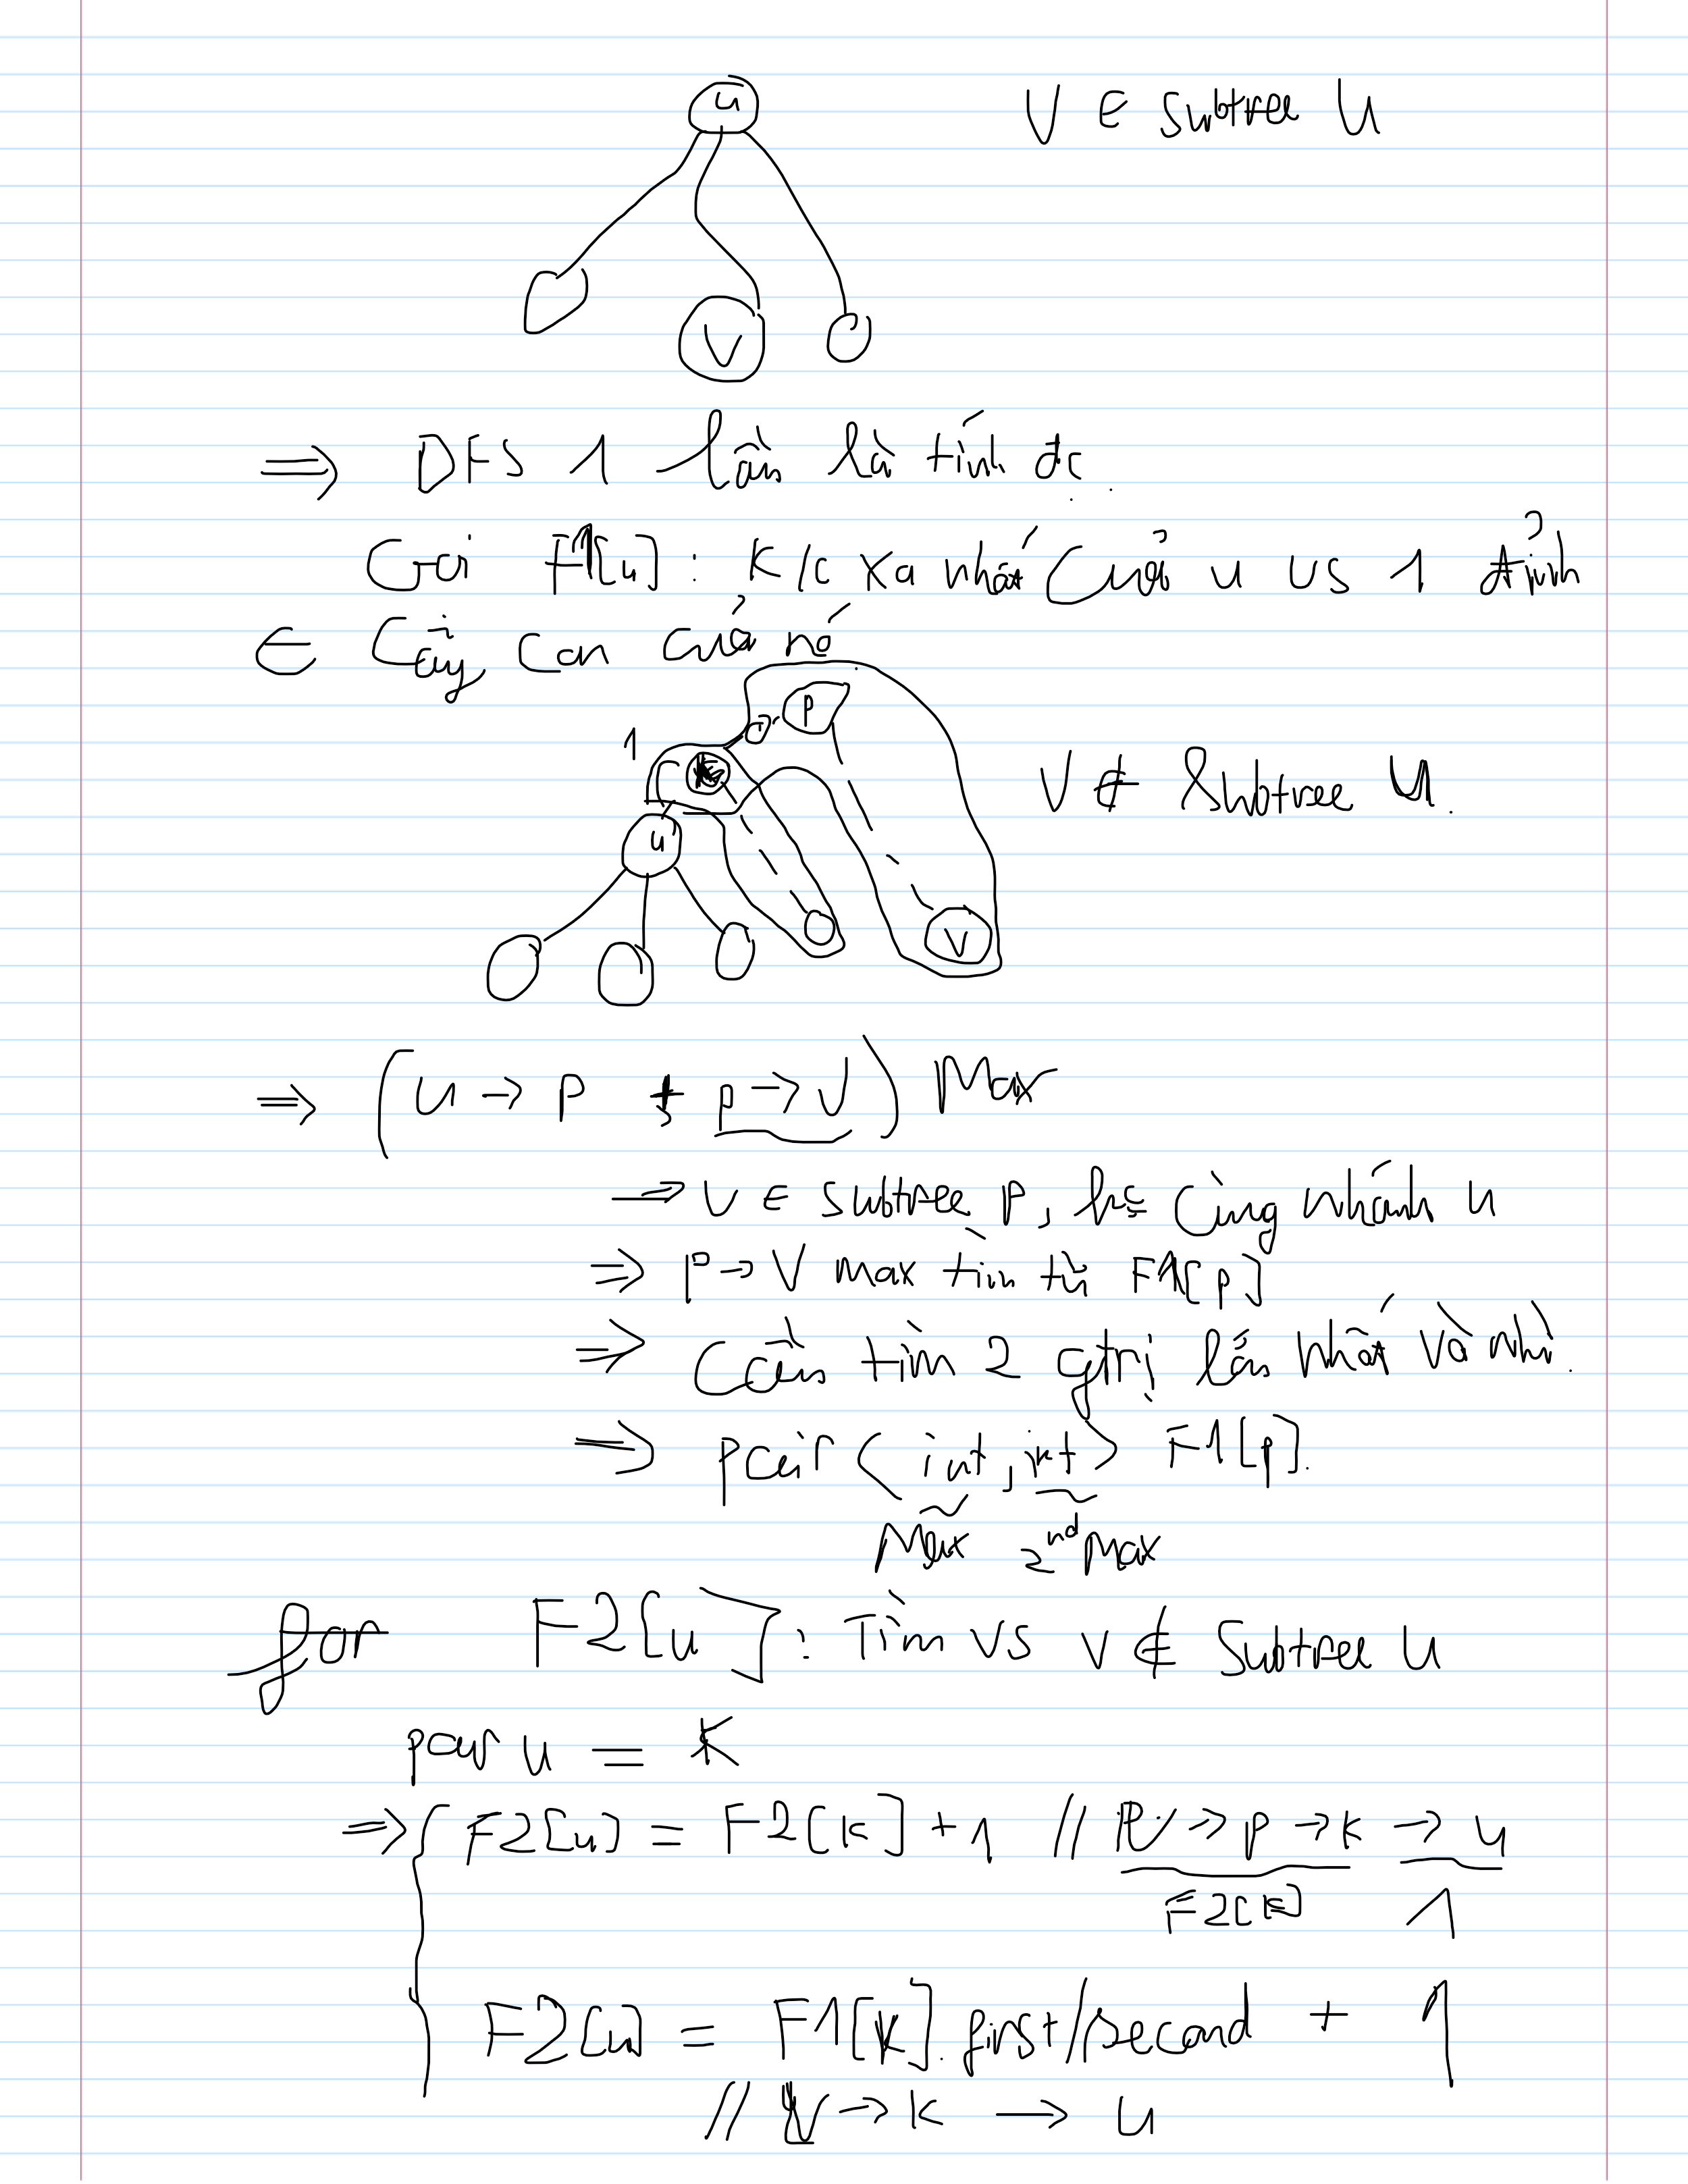 u
V ∈ subtree U
V
⇒ DFS 1 lần là tính đc.
Gọi F1[u] : K/c xa nhất của u vs 1 đỉnh
∈ cây con của nó
P
1
u
V ∉ Subtree U.
V
⇒ (u → p + p → v) Max
→ v ∈ subtree p, ko cùng nhánh u
⇒ p → v max tìm từ F1[p]
⇒ Cần tìm 2 gtrị lớn nhất và nhì.
⇒ pair < int, int > F1[p].
Max 2nd Max
for F2[u] : Tìm vs v ∉ Subtree U
par u = k
⇒ { F2[u] = F2[k] + 1 // v → p → k → u
F2[k] 1
F2[u] = F1[k].first/second + 1
// v → k → u